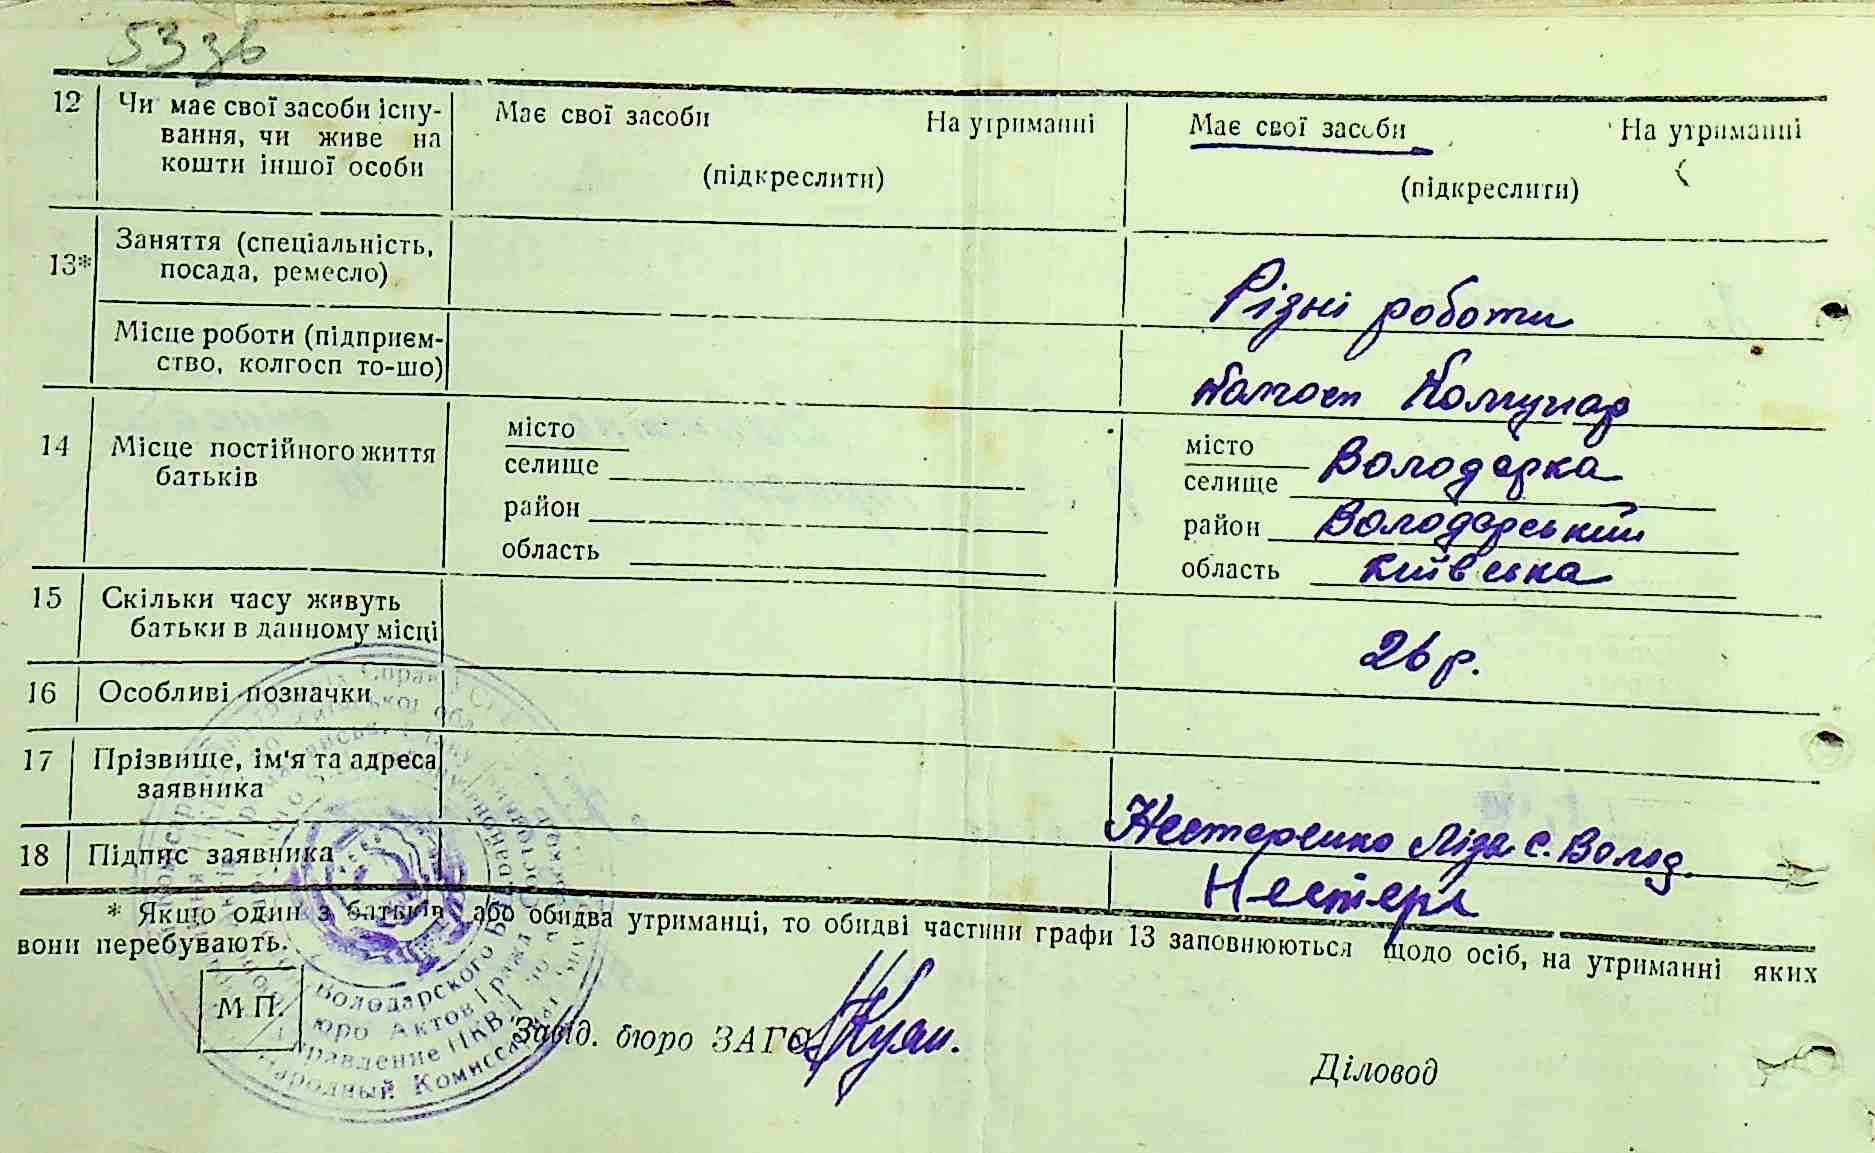 53 зв
12 Чи має свої засоби існу-
вання, чи живе на
кошти іншої особи
Має свої засоби На утриманні
(підкреслити)
Має свої засоби На утриманні
(підкреслити)
13* Заняття (спеціальність,
посада, ремесло)
Різні роботи
Місце роботи (підприєм-
ство, колгосп то-що)
Колгосп Комунар
14 Місце постійного життя
батьків
місто
селище
район
область
місто
селище Володарка
район Володарський
область Київська
15 Скільки часу живуть
батьки в данному місці
26 р.
16 Особливі позначки
17 Прізвище, ім'я та адреса
заявника
Нестеренко Ліда с. Волод.
18 Підпис заявника
Нестере
* Якщо один з батьків або обидва утриманці, то обидві частини графи 13 заповнюються щодо осіб, на утриманні яких
вони перебувають.
М П.
Завід. бюро ЗАГС
Діловод
Володарского
Бюро Актов Гражд
Управление НКВД
Народный Комиссариат